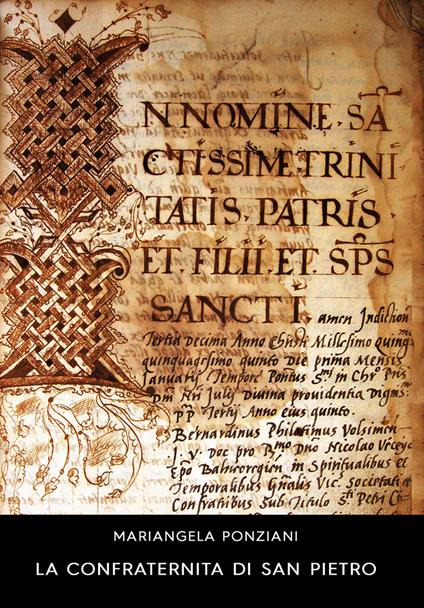 IN NOMINE. SA
CTISSIME. TRINI
TATIS. PATRIS
ET. FILII. ET. SPS
SANCTI. amen Indiction
Tertia Decima Anno Christi Millesimo Quing
quinquagesimo quinto Die prima Mensis
Januarij Tempore Pontus S.mi in Chro Pris
Dni Nri Julij Divina providentia Digms
pp Tertij Anno eius quinto.
Bernardinus Philatimus Volsimen
J. V. Doc pro R.mo Dno Nicolao
Epo Balneoregien in Spiritualibus et
Temporalibus Gnalis Vic. Societati et
Confratibus Sub Titulo S.ti Petri
MARIANGELA PONZIANI
LA CONFRATERNITA DI SAN PIETRO